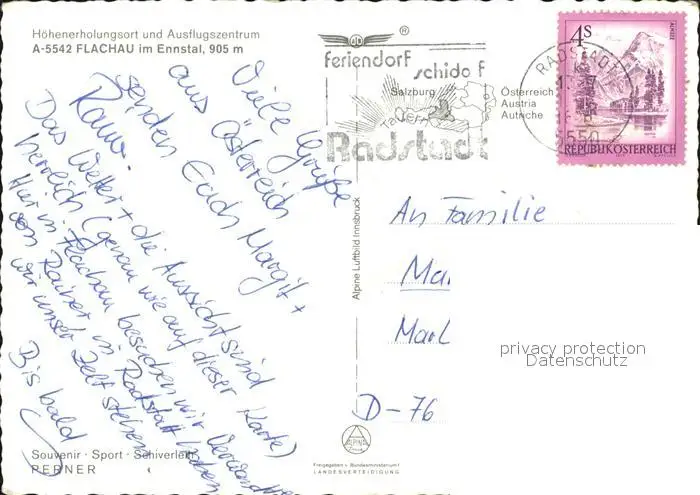 Höhenerholungsort und Ausflugszentrum
A-5542 FLACHAU im Ennstal, 905 m
Viele Grüße
aus Österreich
senden Euch Margit +
Das Wetter + die Aussicht sind
herrlich (genau wie auf dieser Karte)
Hier in Flachau besuchen wir Verwandte
von Rainer, in Radstatt haben
wir unser Zelt stehen
Bis bald
Souvenir · Sport · Schiverleih
PERNER
Alpine Luftbild Innsbruck
®
feriendorf
schidorf
Salzburg
Österreich
Austria
Autriche
Tauern
Radstadt
RADSTADT
5550
4S
REPUBLIK ÖSTERREICH
An Familie
Mai
Marl
D-76
privacy protection
Datenschutz
ALPINE
Freigegeben v. Bundesministerium f.
LANDESVERTEIDIGUNG